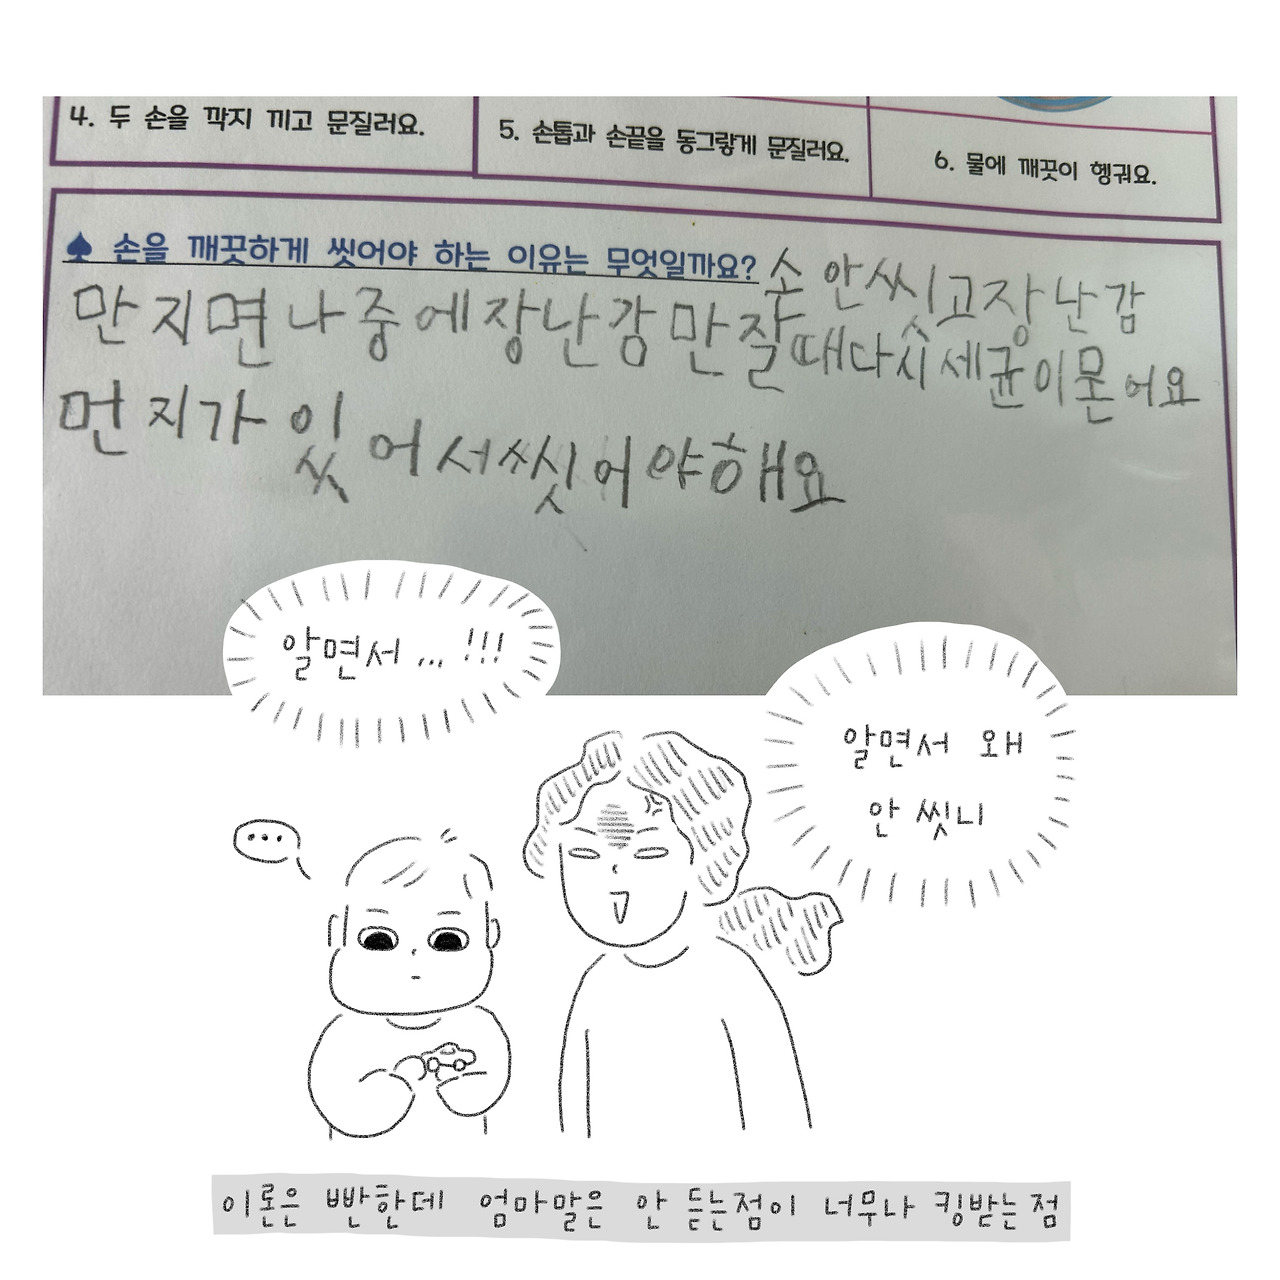 4. 두 손을 깍지 끼고 문질러요.
5. 손톱과 손끝을 동그랗게 문질러요.
6. 물에 깨끗이 헹궈요.
♠ 손을 깨끗하게 씻어야 하는 이유는 무엇일까요? 손 안씻고장난감
만지면나중에장난감만질때다시세균이묻어요
먼지가있어서씻어야해요
알면서...!!!
알면서 왜
안 씻니
...
이론은 빤한데 엄마말은 안 듣는점이 너무나 킹받는점